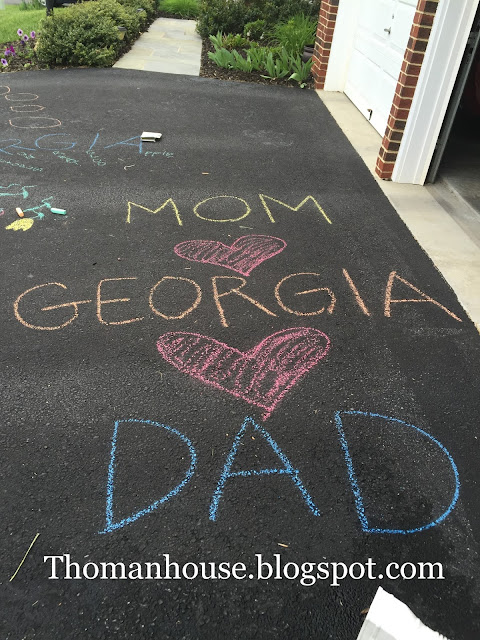 RGIA
MOM
GEORGIA
DAD
Thomanhouse.blogspot.com